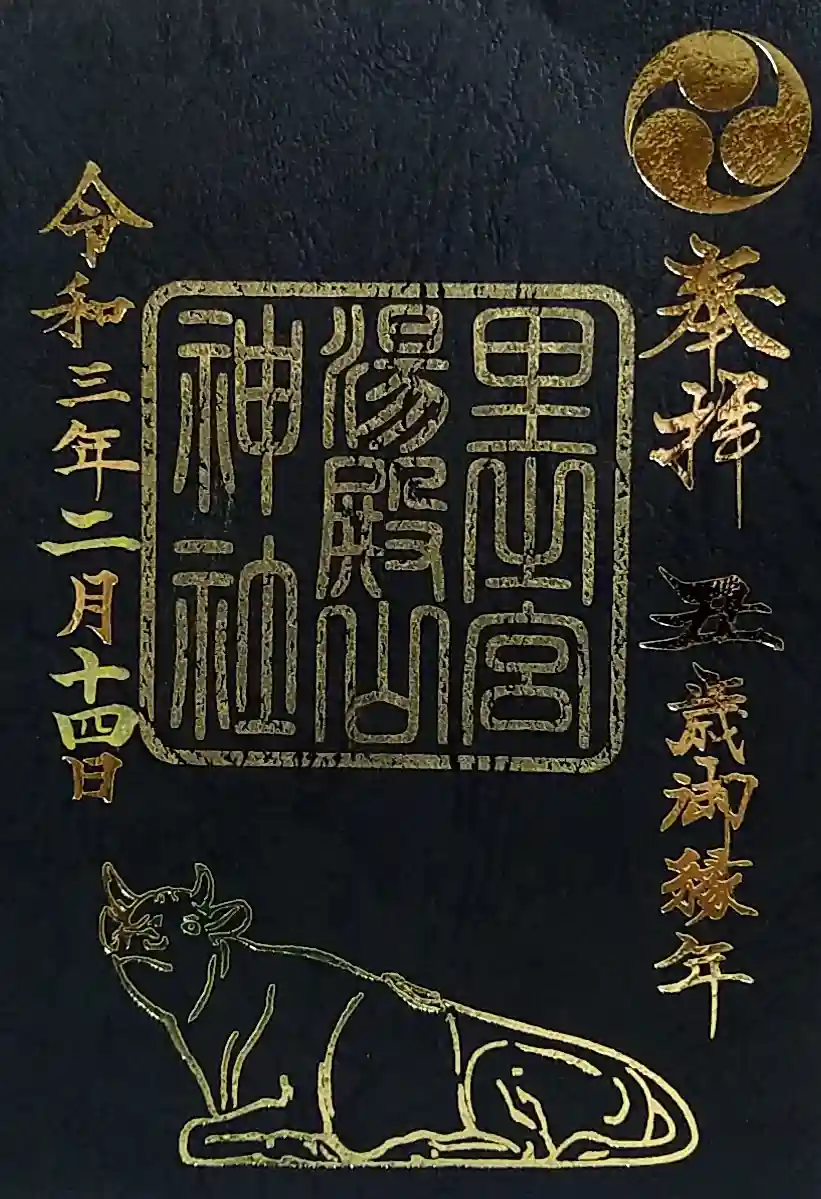 奉拝 丑歳御縁年
里之宮
湯殿山
神社
令和三年二月十四日